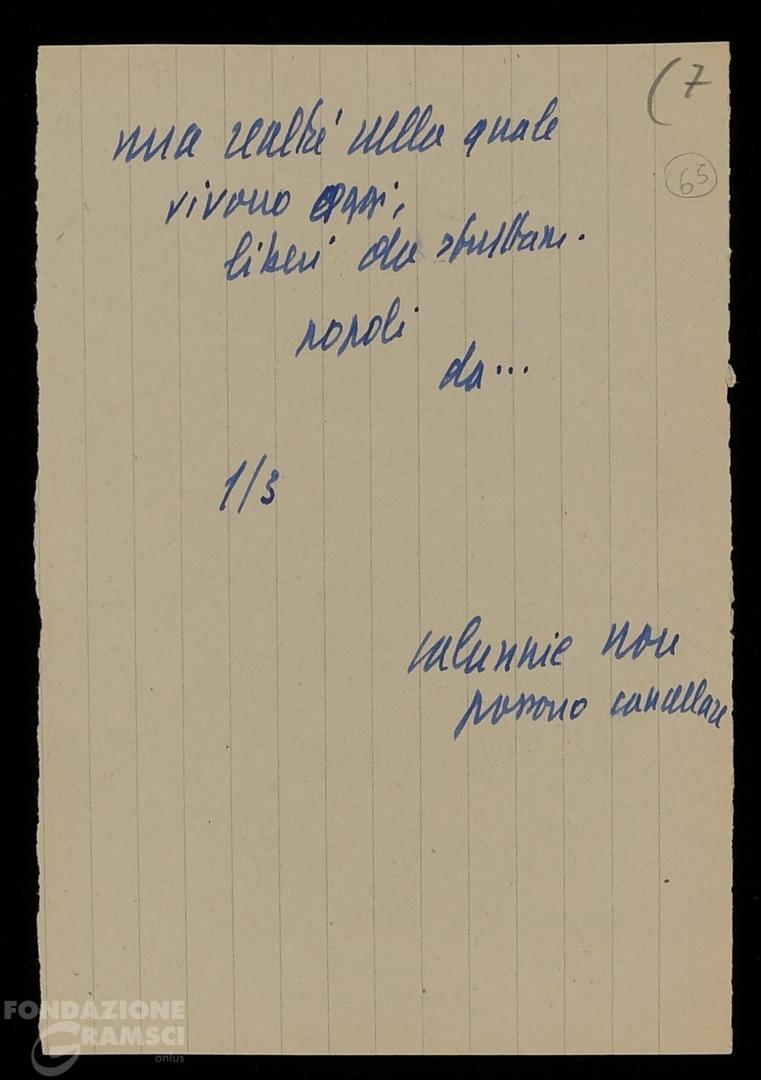 (7
65
una realtà nella quale
vivono oggi,
liberi da sfruttam.
popoli
da...
1/3
calunnie non
possono cancellare
FONDAZIONE
GRAMSCI
onlus